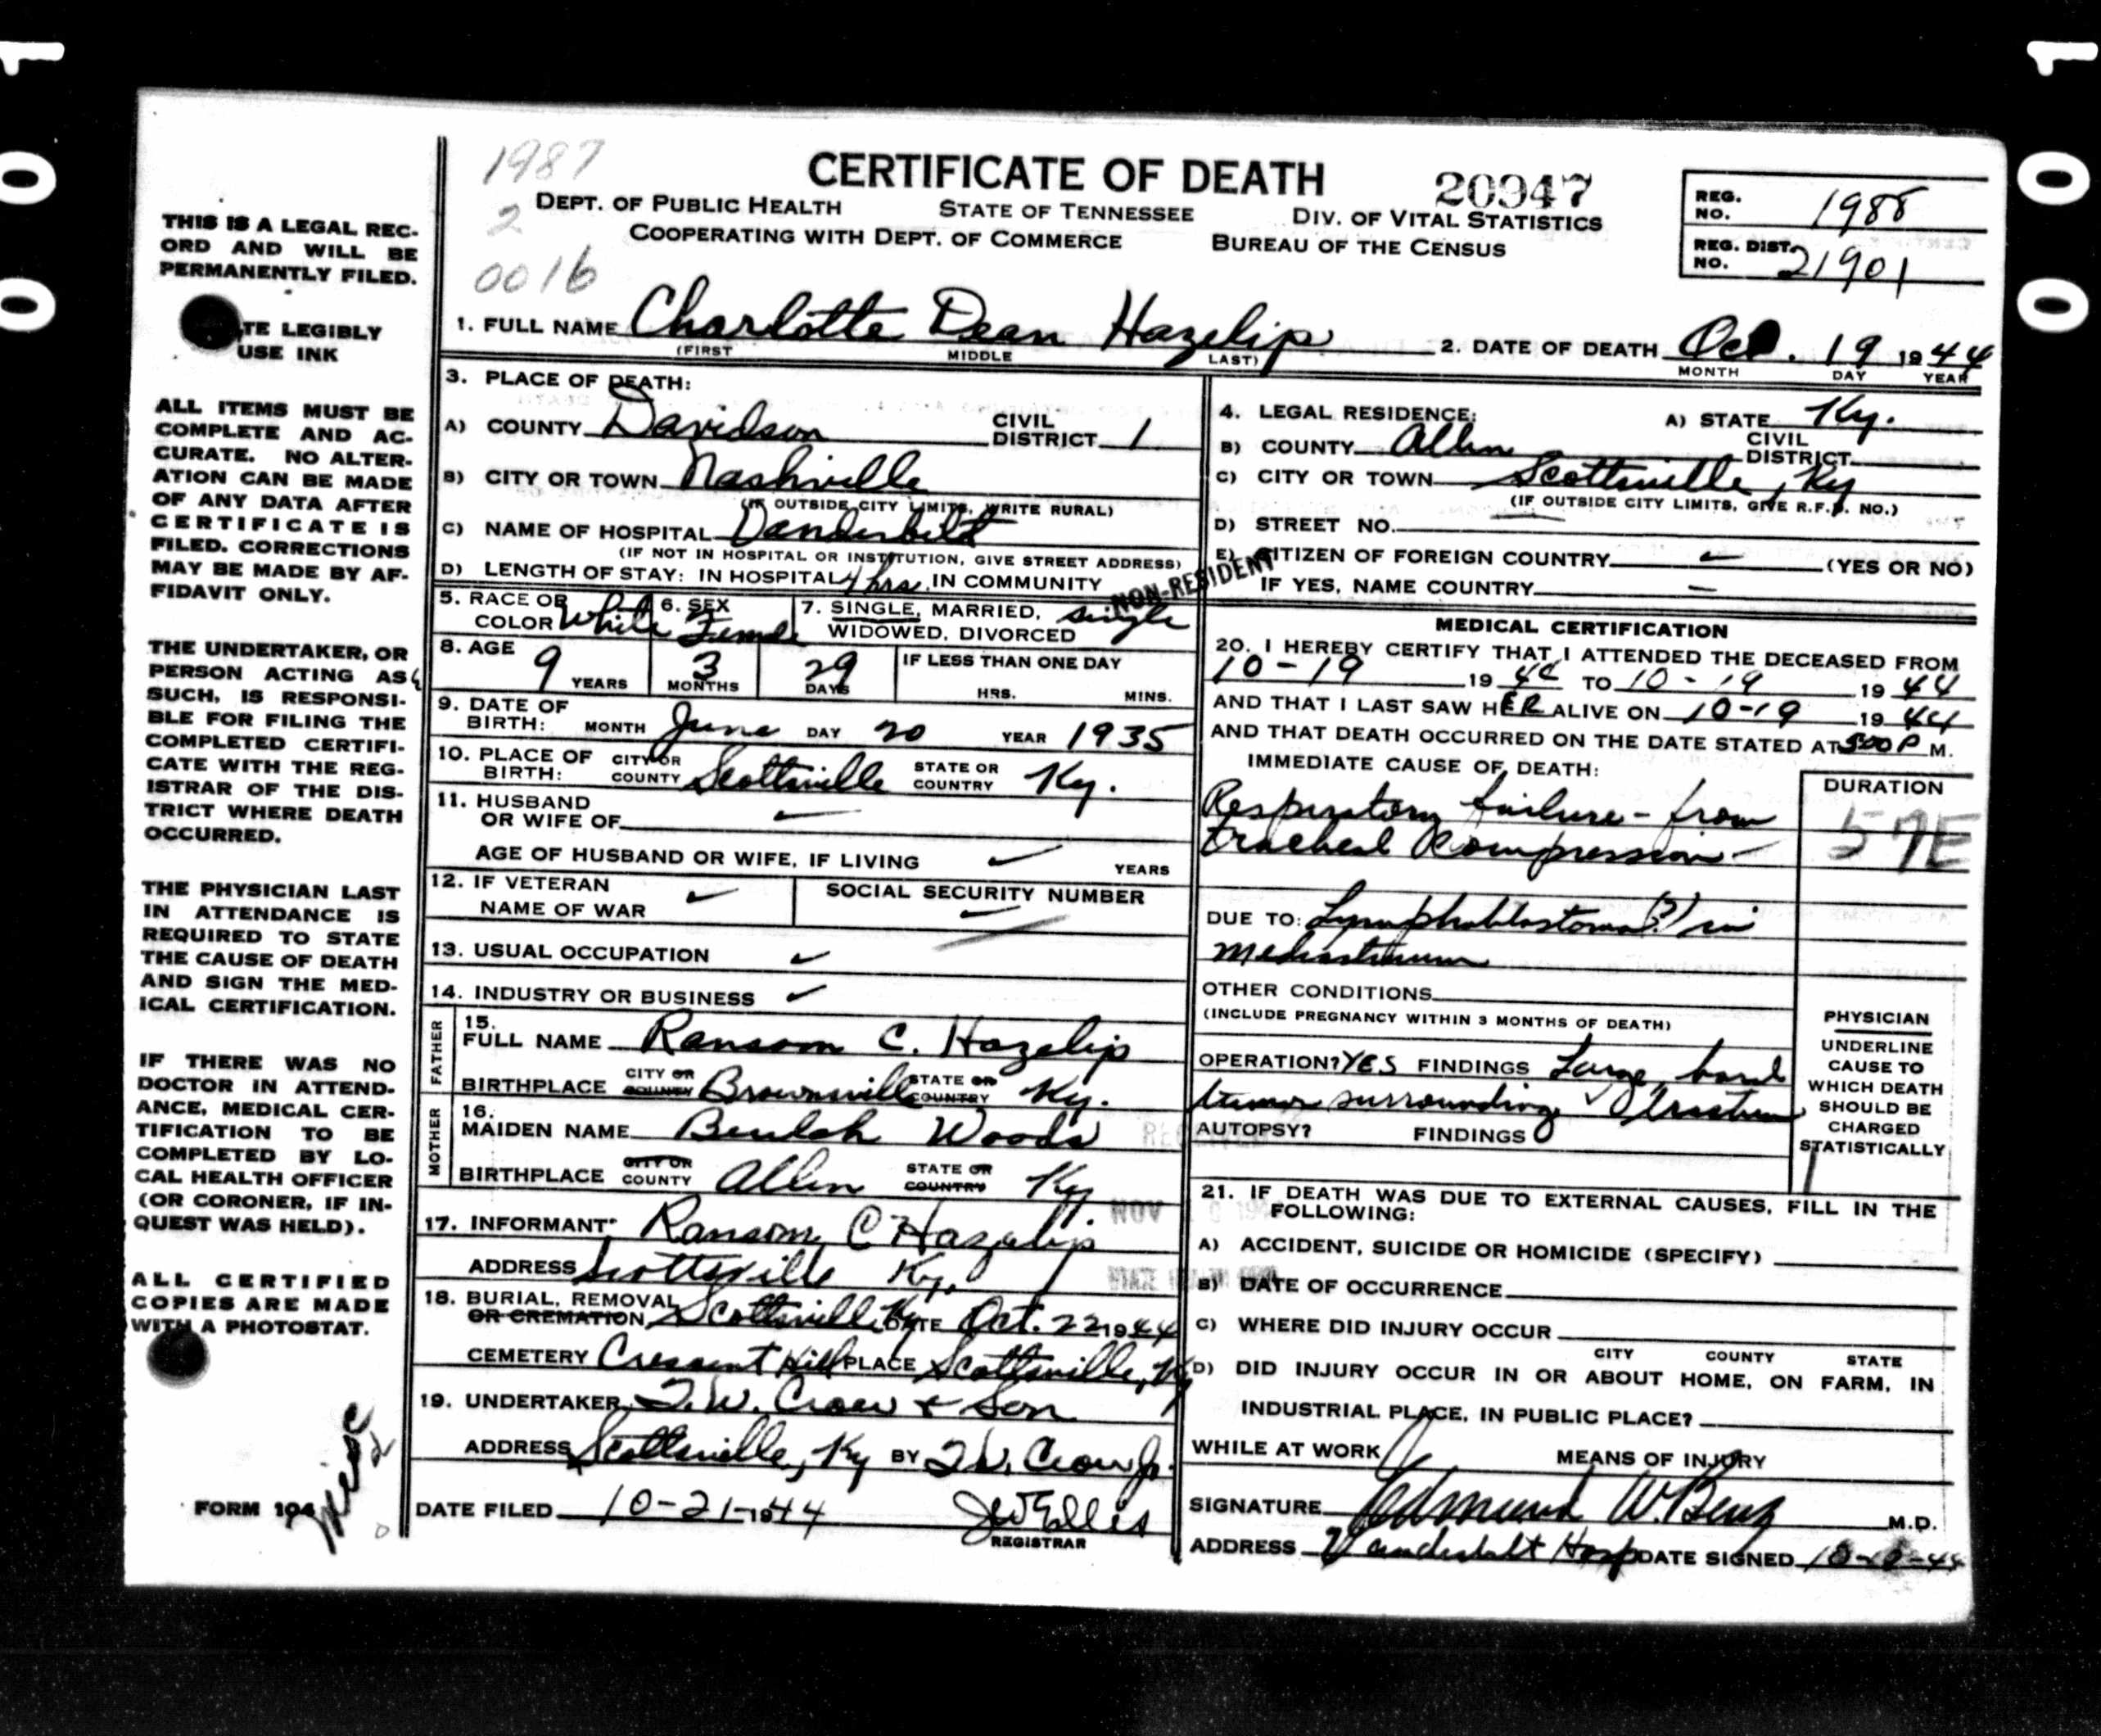 0001
0001
THIS IS A LEGAL REC-
ORD AND WILL BE
PERMANENTLY FILED.
TE LEGIBLY
USE INK
ALL ITEMS MUST BE
COMPLETE AND AC-
CURATE. NO ALTER-
ATION CAN BE MADE
OF ANY DATA AFTER
CERTIFICATE IS
FILED. CORRECTIONS
MAY BE MADE BY AF-
FIDAVIT ONLY.
THE UNDERTAKER, OR
PERSON ACTING AS
SUCH, IS RESPONSI-
BLE FOR FILING THE
COMPLETED CERTIFI-
CATE WITH THE REG-
ISTRAR OF THE DIS-
TRICT WHERE DEATH
OCCURRED.
THE PHYSICIAN LAST
IN ATTENDANCE IS
REQUIRED TO STATE
THE CAUSE OF DEATH
AND SIGN THE MED-
ICAL CERTIFICATION.
IF THERE WAS NO
DOCTOR IN ATTEND-
ANCE, MEDICAL CER-
TIFICATION TO BE
COMPLETED BY LO-
CAL HEALTH OFFICER
(OR CORONER, IF IN-
QUEST WAS HELD).
ALL CERTIFIED
COPIES ARE MADE
WITH A PHOTOSTAT.
FORM 104
1987
2
0016
CERTIFICATE OF DEATH
20947
DEPT. OF PUBLIC HEALTH STATE OF TENNESSEE DIV. OF VITAL STATISTICS
COOPERATING WITH DEPT. OF COMMERCE BUREAU OF THE CENSUS
REG. NO. 1988
REG. DIST. NO. 21901
1. FULL NAME Charlotte Dean Hazelip 2. DATE OF DEATH Oct. 19 1944
(FIRST MIDDLE LAST) MONTH DAY YEAR
3. PLACE OF DEATH:
A) COUNTY Davidson CIVIL DISTRICT 1
B) CITY OR TOWN Nashville
(IF OUTSIDE CITY LIMITS, WRITE RURAL)
C) NAME OF HOSPITAL Vanderbilt
(IF NOT IN HOSPITAL OR INSTITUTION, GIVE STREET ADDRESS)
D) LENGTH OF STAY: IN HOSPITAL 4 hrs. IN COMMUNITY
NON-RESIDENT
4. LEGAL RESIDENCE: A) STATE Ky.
B) COUNTY Allen CIVIL DISTRICT
C) CITY OR TOWN Scottsville, Ky
(IF OUTSIDE CITY LIMITS, GIVE R.F.D. NO.)
D) STREET NO.
E) CITIZEN OF FOREIGN COUNTRY (YES OR NO)
IF YES, NAME COUNTRY
5. RACE OR COLOR White 6. SEX Female 7. SINGLE, MARRIED, WIDOWED, DIVORCED single
8. AGE 9 YEARS 3 MONTHS 29 DAYS IF LESS THAN ONE DAY HRS. MINS.
9. DATE OF BIRTH: MONTH June DAY 20 YEAR 1935
10. PLACE OF BIRTH: CITY OR COUNTY Scottsville STATE OR COUNTRY Ky.
11. HUSBAND OR WIFE OF
AGE OF HUSBAND OR WIFE, IF LIVING YEARS
12. IF VETERAN NAME OF WAR SOCIAL SECURITY NUMBER
13. USUAL OCCUPATION
14. INDUSTRY OR BUSINESS
FATHER
15. FULL NAME Ransom C. Hazelip
BIRTHPLACE CITY OR COUNTY Brownsville STATE OR COUNTRY Ky.
MOTHER
16. MAIDEN NAME Beulah Woods
BIRTHPLACE CITY OR COUNTY Allen STATE OR COUNTRY Ky.
17. INFORMANT Ransom C Hazelip
ADDRESS Scottsville Ky.
18. BURIAL, REMOVAL OR CREMATION Scottsville Ky DATE Oct. 22 1944
CEMETERY Crescent Hill PLACE Scottsville, Ky
19. UNDERTAKER T.W. Crow & Son
ADDRESS Scottsville, Ky BY T.W. Crow Jr.
DATE FILED 10-21-1944 JWEllis
REGISTRAR
RECEIVED
NOV
MEDICAL CERTIFICATION
20. I HEREBY CERTIFY THAT I ATTENDED THE DECEASED FROM
10-19 1944 TO 10-19 1944
AND THAT I LAST SAW HER ALIVE ON 10-19 1944
AND THAT DEATH OCCURRED ON THE DATE STATED AT 5:00 P M.
IMMEDIATE CAUSE OF DEATH: DURATION
Respiratory failure - from
tracheal compression -
57E
DUE TO: Lymphoblastoma (?) in
mediastinum
OTHER CONDITIONS
(INCLUDE PREGNANCY WITHIN 3 MONTHS OF DEATH)
OPERATION? YES FINDINGS Large, hard
tumor surrounding trachea
AUTOPSY? FINDINGS
PHYSICIAN
UNDERLINE
CAUSE TO
WHICH DEATH
SHOULD BE
CHARGED
STATISTICALLY
21. IF DEATH WAS DUE TO EXTERNAL CAUSES, FILL IN THE
FOLLOWING:
A) ACCIDENT, SUICIDE OR HOMICIDE (SPECIFY)
B) DATE OF OCCURRENCE
C) WHERE DID INJURY OCCUR
CITY COUNTY STATE
D) DID INJURY OCCUR IN OR ABOUT HOME, ON FARM, IN
INDUSTRIAL PLACE, IN PUBLIC PLACE?
WHILE AT WORK MEANS OF INJURY
SIGNATURE Edmund W. Benz M.D.
ADDRESS Vanderbilt Hosp DATE SIGNED